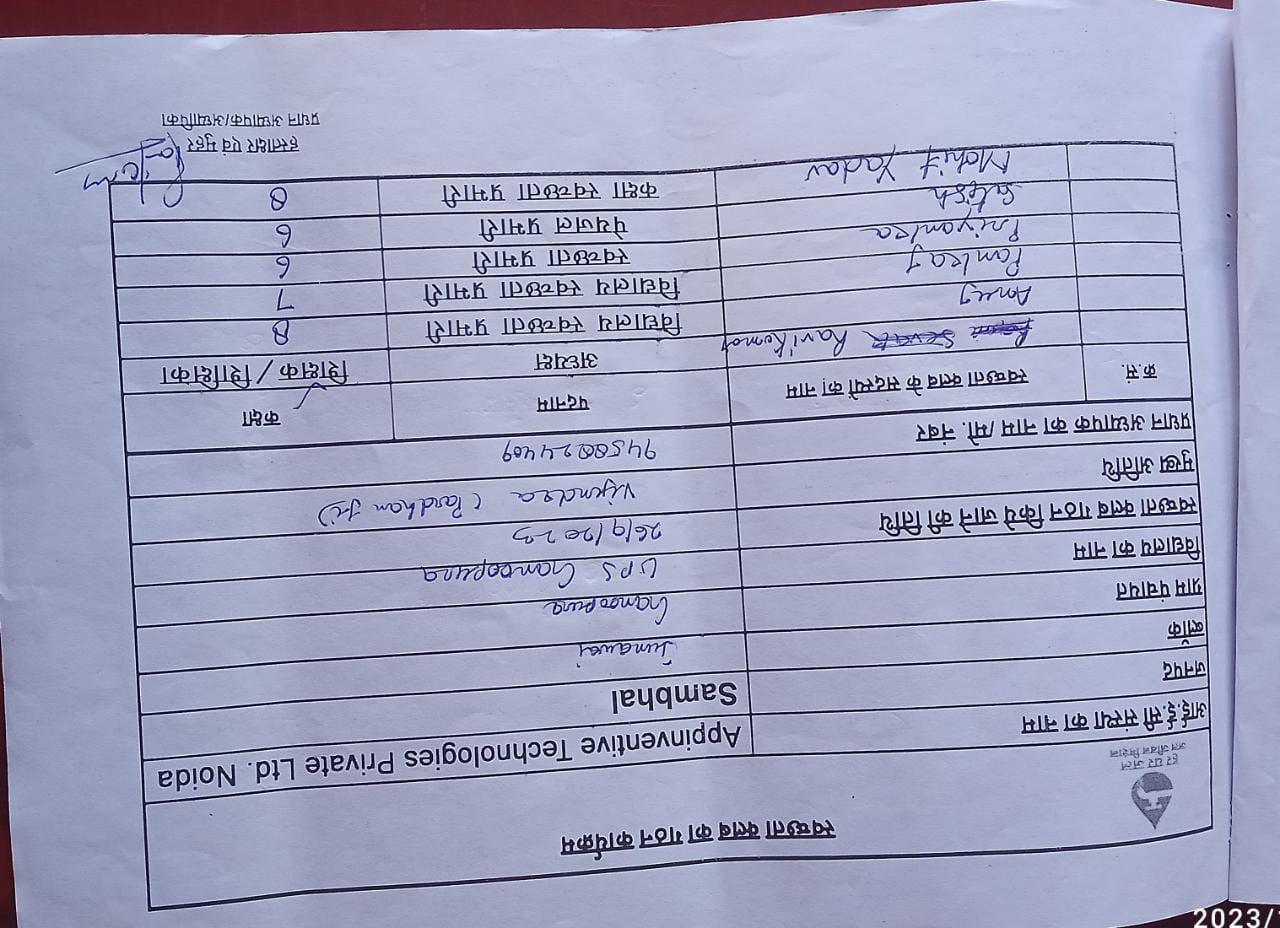 स्वच्छता क्लब का गठन कार्यक्रम
हर घर जल
जल जीवन मिशन
आई.ई.सी संस्था का नाम Appinventive Technologies Private Ltd. Noida
जनपद Sambhal
ब्लॉक Junawai
ग्राम पंचायत
विद्यालय का नाम UPS
स्वच्छता क्लब गठन किये जाने की तिथि 26/9/2023
मुख्य अतिथि (Pardhan Ji)
प्रधान अध्यापक का नाम /मो. नंबर
क्र.सं. स्वच्छता क्लब के सदस्यों का नाम पदनाम कक्षा
Ravi Kumar अध्यक्ष शिक्षक / शिक्षिका
Anuj विद्यालय स्वच्छता प्रभारी 8
Pankaj विद्यालय स्वच्छता प्रभारी 7
Priyanka स्वच्छता प्रभारी 6
Satish पेयजल प्रभारी 6
Mohit Yadav कक्षा स्वच्छता प्रभारी 8
हस्ताक्षर एवं मुहर
प्रधान अध्यापक/अध्यापिका
2023/